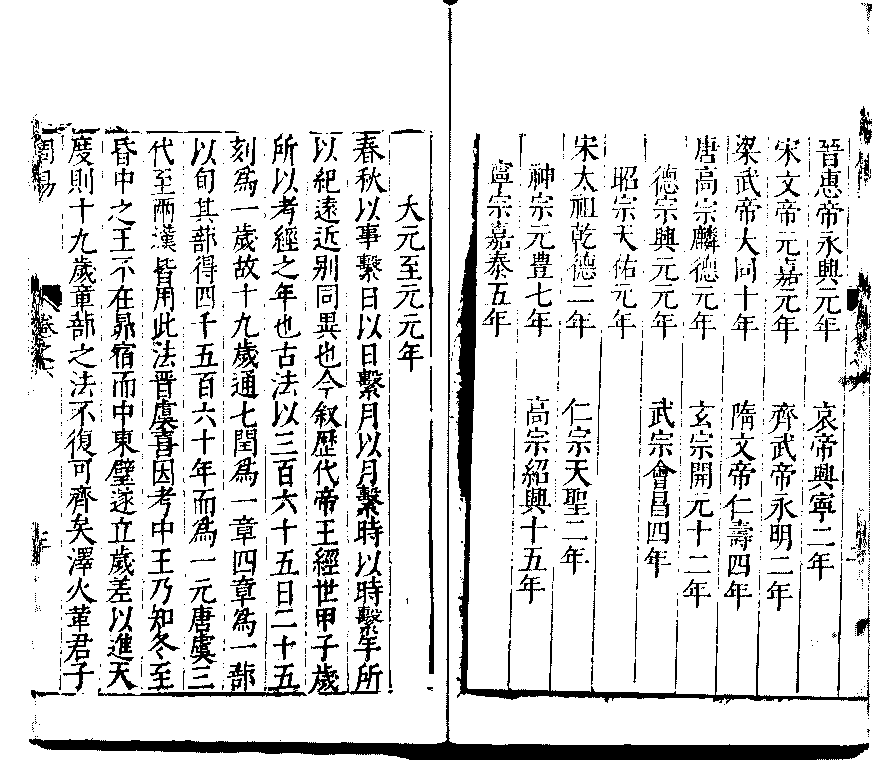 晉惠帝永興元年　哀帝興寧二年
宋文帝元嘉元年　齊武帝永明二年
梁武帝大同十年　隋文帝仁壽四年
唐高宗麟德元年　玄宗開元十二年
德宗興元元年　武宗會昌四年
昭宗天佑元年
宋太祖乾德二年　仁宗天聖二年
神宗元豊七年　高宗紹興十五年
寧宗嘉泰五年
大元至元元年
春秋以事繫日以日繫月以月繫時以時繫年所
以紀遠近别同異也今叙歷代帝王經世甲子歲
所以考經之年也古法以三百六十五日二十五
刻為一歲故十九歲通七閏為一章四章為一蔀
以旬其蔀得四千五百六十年而為一元唐虞三
代至兩漢皆用此法晋虞喜因考中王乃知冬至
昏中之王不在昴宿而中東壁遂立歲差以進天
度則十九歲章蔀之法不復可齊矣澤火革君子
周易